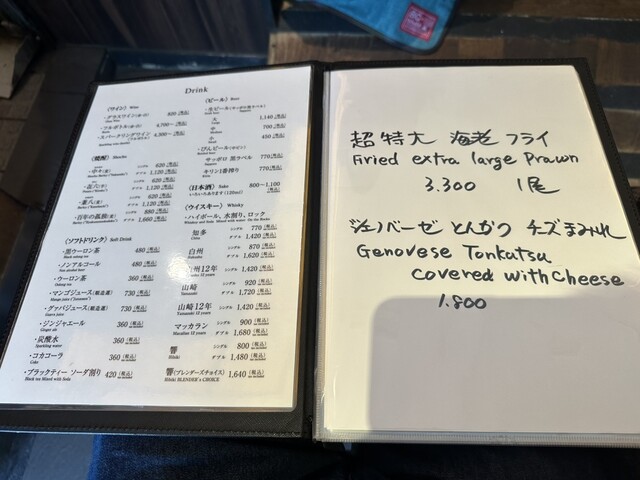 Drink
〈ワイン〉 Wine
・グラスワイン(赤・白) 600 (税込)
・フルボトル(赤・白) 4,700～ (税込)
・スパークリングワイン 4,500～ (税込)
〈焼酎〉 Shochu
シングル 620 (税込)
ダブル 1,120 (税込)
シングル 620 (税込)
ダブル 1,120 (税込)
シングル 620 (税込)
ダブル 1,120 (税込)
・百年の孤独(麦) シングル 880 (税込)
ダブル 1,660 (税込)
〈ソフトドリンク〉 Soft Drink
・黒ウーロン茶 480 (税込)
Black oolong tea
・ノンアルコール 480 (税込)
Non alcohol beer
・ウーロン茶 360 (税込)
Oolong tea
・マンゴジュース(軽造選) 730 (税込)
・グァバジュース(軽造選) 730 (税込)
・ジンジャエール 360 (税込)
Ginger ale
・炭酸水 360 (税込)
Sparkling water
・コカコーラ 360 (税込)
Coke
・ブラックティー ソーダ割り 420 (税込)
Black tea Mixed with Soda
〈ビール〉 Beer
・生ビール
大 1,140 (税込)
中 700 (税込)
小 450 (税込)
・びんビール
サッポロ 黒ラベル 770 (税込)
キリン一番搾り 770 (税込)
〈日本酒〉 Sake 800～1,100 (税込)
いろいろあります(120ml)
〈ウイスキー〉 Whisky
・ハイボール、水割り、ロック
知多 シングル 770 (税込)
Chita ダブル 1,420 (税込)
白州 シングル 870 (税込)
ダブル 1,620 (税込)
白州12年 シングル 1,420 (税込)
山崎 シングル 920 (税込)
ダブル 1,720 (税込)
山崎12年 シングル 1,420 (税込)
Yamazaki 12 years
マッカラン シングル 900 (税込)
Macallan 12 years ダブル 1,680 (税込)
響 シングル 800 (税込)
Hibiki ダブル 1,480 (税込)
響(ブレンダーズチョイス) 1,640 (税込)
Hibiki BLENDER's CHOICE
超特大 海老フライ
Fried extra large Prawn
3.300 1尾
ジェノベーゼ とんかつ チーズまみれ
Genovese Tonkatsu
covered with cheese
1.800